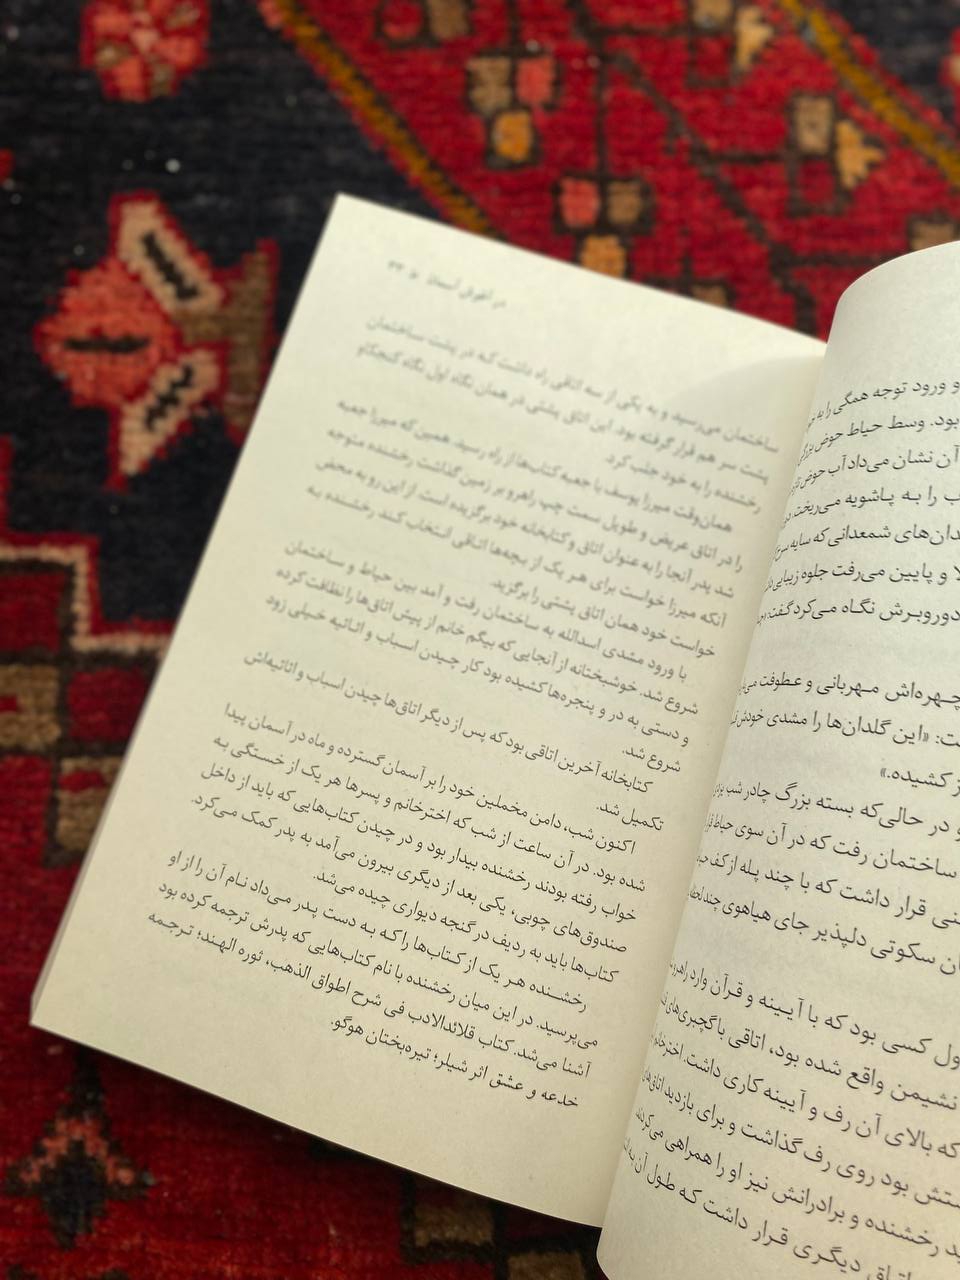 و ورود توجه همگی را به
بود. وسط حیاط حوض
آن نشان می‌داد آب حوض
را به پاشویه می‌ریخت.
شمعدانی که سایه
و پایین می‌رفت جلوه زیبایی
دوروبرش نگاه می‌کرد گفت:
چهره‌اش مهربانی و عطوفت
«این گلدان‌ها را مشدی خودش
کشیده.»
و در حالی‌که بسته بزرگ چادر شب
ساختمان رفت که در آن سوی حیاط
قرار داشت که با چند پله از کف
سکوتی دلپذیر جای هیاهوی چند
کسی بود که با آیینه و قرآن وارد
نشیمن واقع شده بود، اتاقی با گچبری‌های
که بالای آن رف و آیینه کاری داشت.
بود روی رف گذاشت و برای بازدید
رخشنده و برادرانش نیز او را همراهی می‌کردند.
دیگری قرار داشت که طول آن
در آغوش آسمان ۴۳
ساختمان می‌رسید و به یکی از سه اتاقی راه داشت که در پشت ساختمان
پشت سر هم قرار گرفته بود. این اتاق پشتی در همان نگاه اول نگاه کنجکاو
رخشنده را به خود جلب کرد.
همان‌وقت میرزا یوسف با جعبه کتاب‌ها از راه رسید. همین که میرزا جعبه
را در اتاق عریض و طویل سمت چپ راهرو بر زمین گذاشت رخشنده متوجه
شد پدر آنجا را به عنوان اتاق و کتابخانه خود برگزیده است. از این رو به محض
آنکه میرزا خواست برای هر یک از بچه‌ها اتاقی انتخاب کند رخشنده به
خواست خود همان اتاق پشتی را برگزید.
با ورود مشدی اسدالله به ساختمان رفت و آمد بین حیاط و ساختمان
شروع شد. خوشبختانه از آنجایی که بیگم خانم از پیش اتاق‌ها را نظافت کرده
و دستی به در و پنجره‌ها کشیده بود کار چیدن اسباب و اثاثیه خیلی زود
شروع شد.
کتابخانه آخرین اتاقی بود که پس از دیگر اتاق‌ها چیدن اسباب و اثاثیه‌اش
تکمیل شد.
اکنون شب، دامن مخملین خود را بر آسمان گسترده و ماه در آسمان پیدا
شده بود. در آن ساعت از شب که اخترخانم و پسرها هر یک از خستگی به
خواب رفته بودند رخشنده بیدار بود و در چیدن کتاب‌هایی که باید از داخل
صندوق‌های چوبی، یکی بعد از دیگری بیرون می‌آمد به پدر کمک می‌کرد.
کتاب‌ها باید به ردیف در گنجه دیواری چیده می‌شد.
رخشنده هر یک از کتاب‌ها را که به دست پدر می‌داد نام آن را از او
می‌پرسید. در این میان رخشنده با نام کتاب‌هایی که پدرش ترجمه کرده بود
آشنا می‌شد. کتاب قلائدالادب فی شرح اطواق الذهب، ثوره الهند؛ ترجمه
خدعه و عشق اثر شیلر؛ تیره‌بختان هوگو.